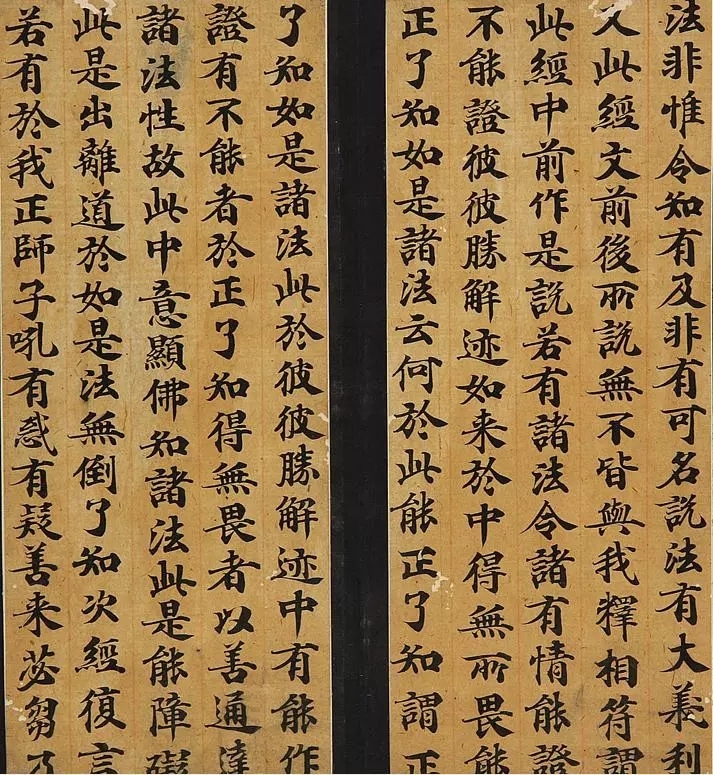 法非惟令知有及非有可名說法有大義利
又此經文前後所說無不皆與我釋相符謂
此經中前作是說若有諸法令諸有情能證
不能證彼彼勝解迹如来於中得無所畏能
正了知如是諸法云何於此能正了知謂正
了知如是諸法此於彼彼勝解迹中有能作
證有不能者於正了知得無畏者以善通達
諸法性故此中意顯佛知諸法此是能障礙
此是出離道於如是法無倒了知次經復言
若有於我正師子吼有惑有疑善来苾芻乃